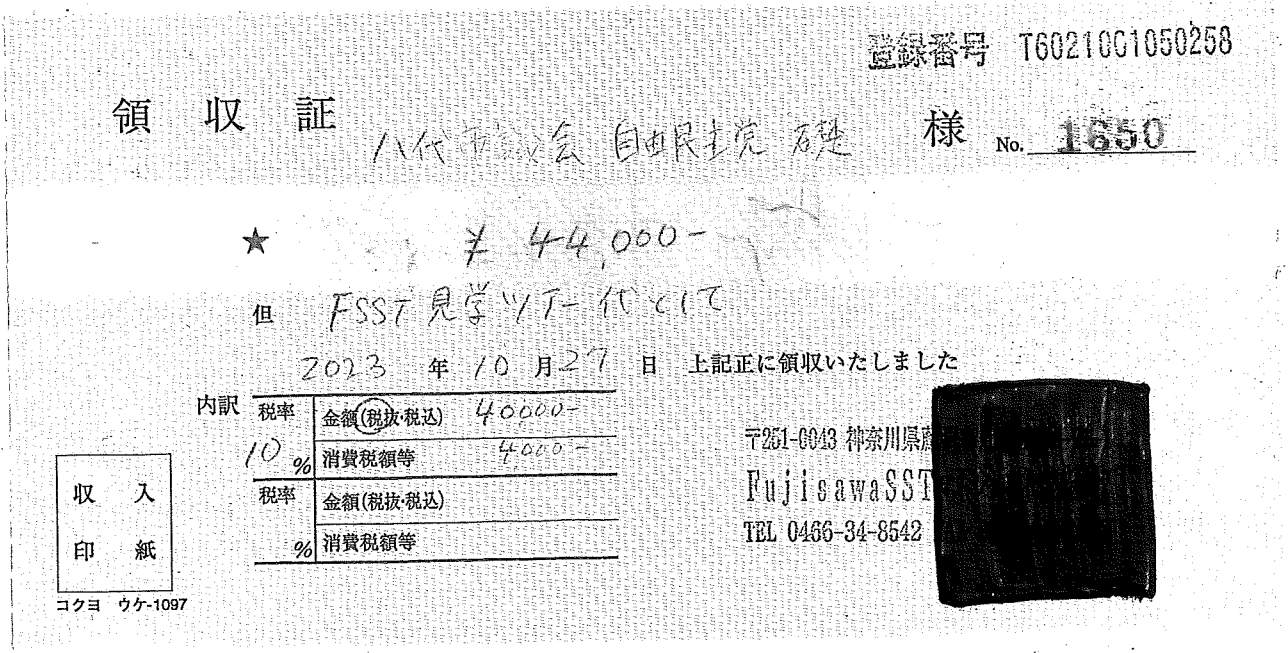 登録番号 T6021001050258
領収証 八代市議会 自由民主党 礎 様 No. 1650
★ ¥ 44,000-
但 FSST見学ツアー代として
2023 年 10 月 27 日 上記正に領収いたしました
内訳 税率 10 % 金額(税抜・税込) 40000-
消費税額等 4000-
税率 % 金額(税抜・税込)
消費税額等
〒251-0043 神奈川県
FujisawaSST
TEL 0466-34-8542
収入
印紙
コクヨ ウケ-1097